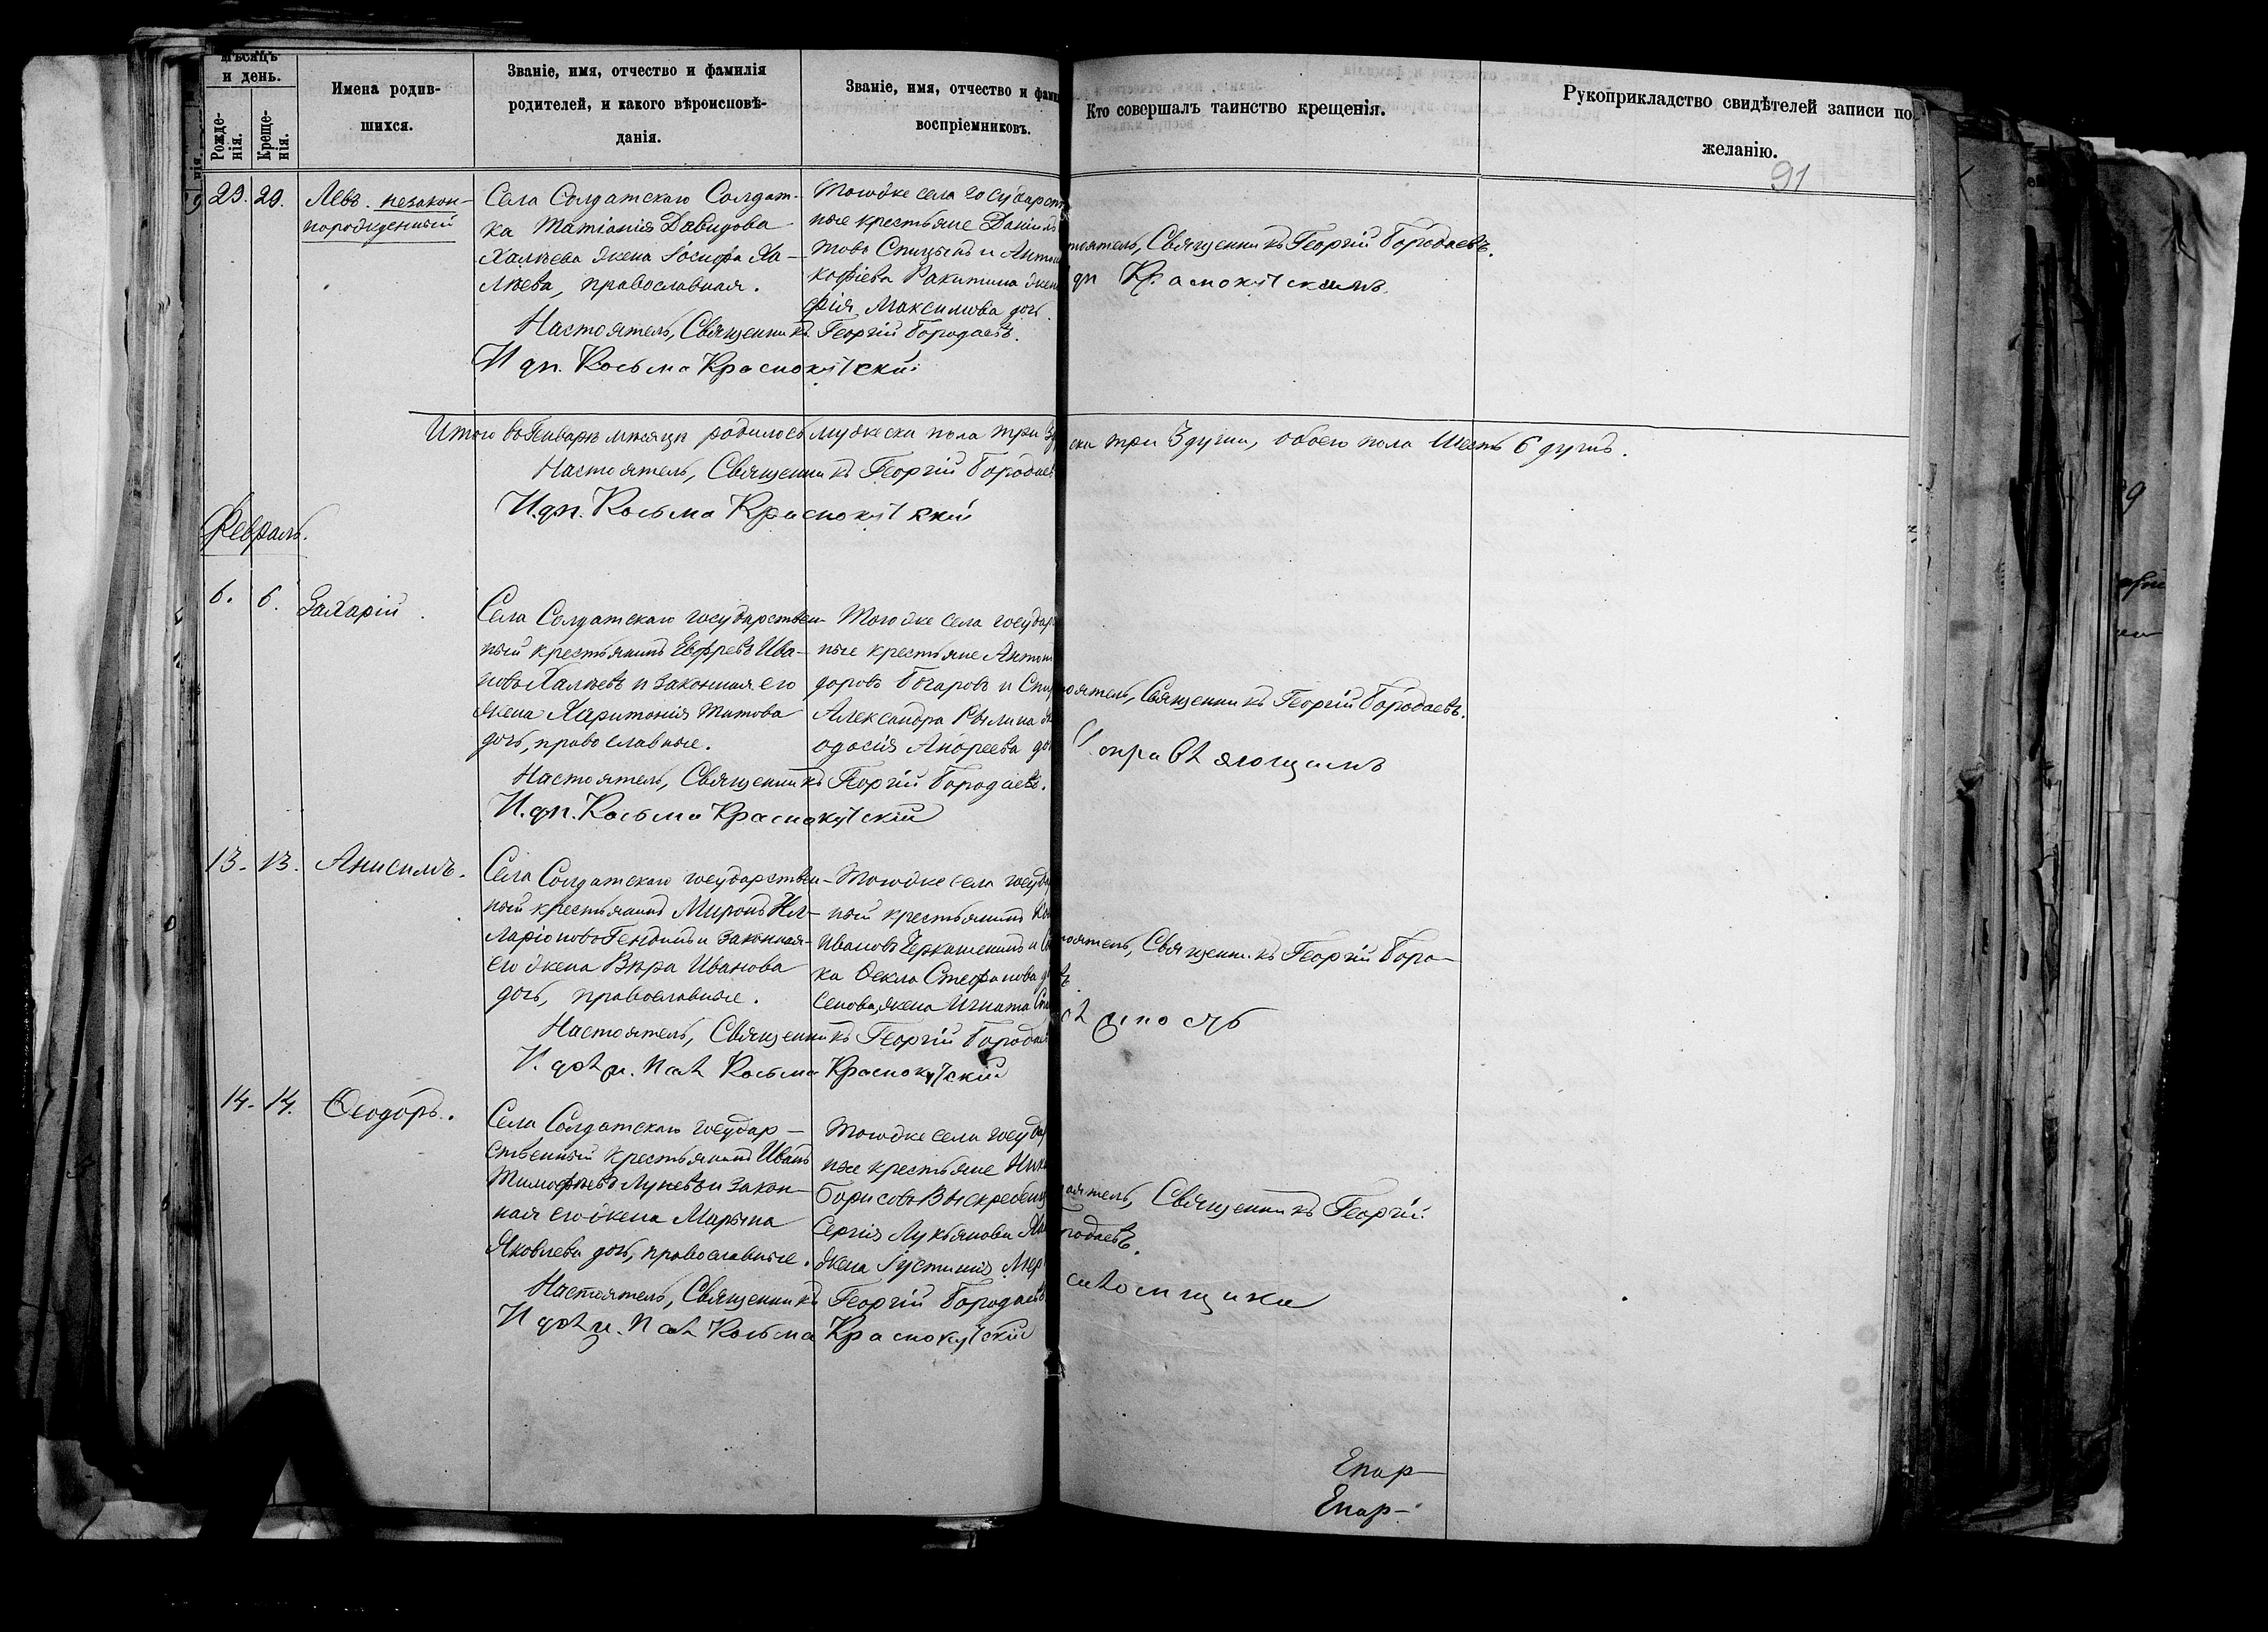 мѣсяцъ
и день.
Рожде-
нія.
Креще-
нія.
Имена родив-
шихся.
Званіе, имя, отчество и фамилія
родителей, и какого вѣроисповѣ-
данія.
Званіе, имя, отчество и фами
воспріемниковъ.
Кто совершалъ таинство крещенія.
Рукоприкладство свидѣтелей записи по
желанію.
91
29. 29.
Левъ. незакон-
норожденный
Села Солдатскаго Солдат-
ка Татіанія Давидова
Халѣева жена Іосифа Ха-
лѣева, православная.
Тогоже села государст
ные крестьяне Даніилъ
товъ Спицынъ и Антон
кофіева Ракитина жен
фія Максимова дочь.
Настоятель, Священникъ Георгій Городаевъ.
И дп. Косьма Краснокутскій
тоятель, Священникъ Георгій Городаевъ.
дп Краснокутскимъ
Итого въ Генварѣ мѣсяцѣ родилось мужеска пола три 3
ска три 3 души, обоего пола Шесть 6 душъ.
Настоятель, Священникъ Георгій Городаев
И.дп. Косьма Краснокутскій
Февраль.
6. 6.
Захарій.
Села Солдатскаго государствен-
ный крестьянинъ Евфревъ Ива-
новъ Халѣевъ и законная его
жена Харитонія Титова
дочь, православные.
Тогоже села государ
ные крестьяне Антон
доровъ Бочаровъ и Спи
Александра Рылина
одосія Андреева до
Настоятель, Священникъ Георгій Городаевъ.
И.дп. Косьма Краснокутскій
оятель, Священникъ Георгій Городаевъ.
справляющимъ
13. 13.
Анисимъ.
Села Солдатскаго государствен-
ный крестьянинъ Миронъ Ил-
ларіоновъ Гендинъ и законная
его жена Вѣра Иванова
дочь, православные.
Тогоже села государ
ный крестьянинъ
Ивановъ Черкашенинъ и
ка Ѳекла Стефанова
Сенова, жена Игната
Настоятель, Священникъ Георгій Городаев
И. должн. Псал Косьма Краснокутскій
оятель, Священникъ Георгій Горо-
должность
14. 14.
Ѳеодоръ.
Села Солдатскаго государ-
ственный крестьянинъ Иванъ
Тимофѣевъ Луневъ и закон-
ная его жена Марѳина
Яковлева дочь, православные.
Тогоже села государ
ные крестьяне Ник
Борисовъ Выскребенц
Сергія Лукьянова
жена Іустинія Мер
Настоятель, Священникъ Георгій Городаевъ
И должн. Псал Косьма Краснокутскій
оятель, Священникъ Георгій
родаевъ.
саломщика
Епар-
Епар-